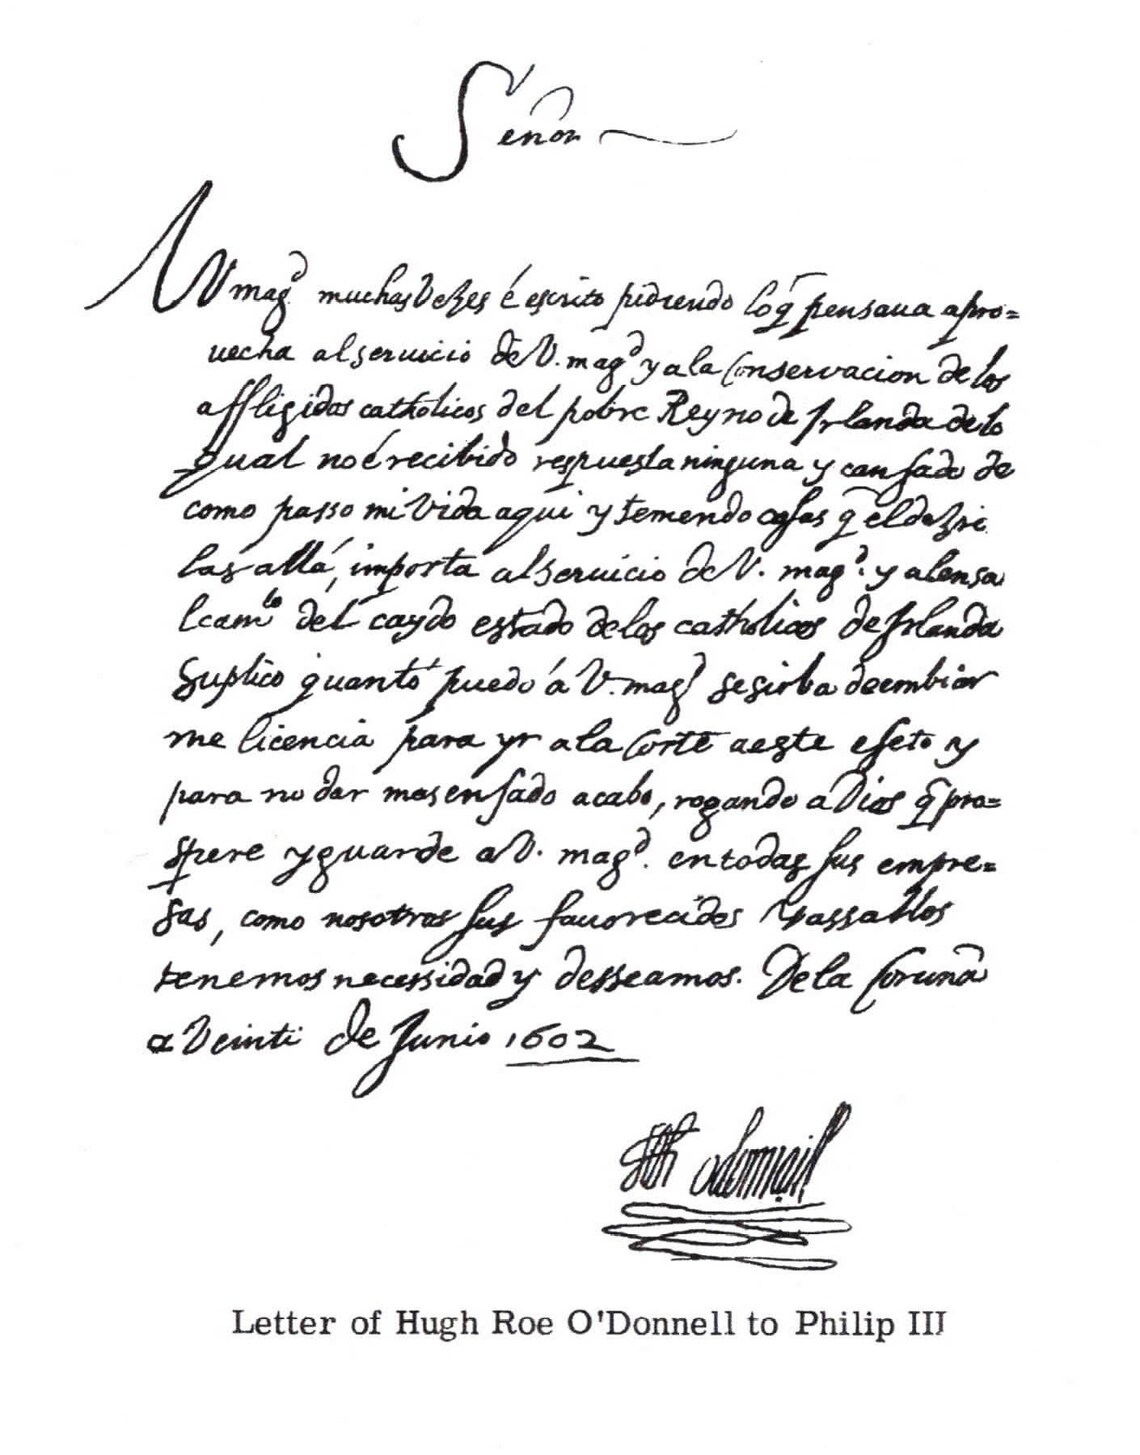 Señor
A V magd muchas Vezes é escrito pidiendo lo q̄ pensaua apro=
uecha al seruicio de V. magd y a la Conservacion de los
affligidos catholicos del pobre Reyno de Irlanda de lo
qual no é recibido respuesta ninguna y cansado de
como passo mi Vida aqui y temendo cosas q̄ el dezir
las allá, importa al seruicio de V. magd. y al ensa
lcamto del caydo estado de los catholicos de Irlanda
Suplico quanto puedo á V. magd se sirba de embiar
me licencia para yr a la Corte a este efeto y
para no dar mas enfado acabo, rogando a Dios q̄ pro=
spere y guarde a V. magd. en todas sus empre=
sas, como nosotros sus fauorecidos Vassallos
tenemos necessidad y desseamos. De la Coruña
a Veinti de Junio 1602
Letter of Hugh Roe O'Donnell to Philip III